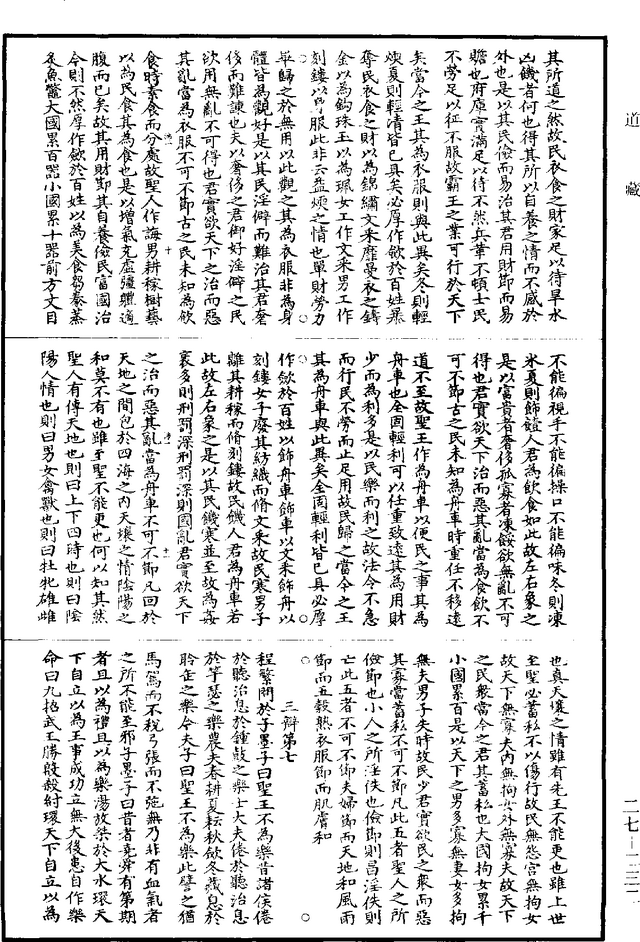 道藏
其所道之然故民衣食之財家足以待旱水
凶饑者何也得其所以自養之情而不感於
外也是以其民儉而易治其君用財節而易
贍也府庫實滿足以待不然兵革不頓士民
不勞足以征不服故霸王之業可行於天下
矣當今之王其為衣服則與此異矣冬則輕
煗夏則輕凊皆已具矣必厚作斂於百姓暴
奪民衣食之財以為錦繡文采靡曼衣之鑄
金以為鉤珠玉以為珮女工作文采男工作
刻鏤以身服此非云益煗之情也單財勞力
畢歸之於無用以此觀之其為衣服非為身
體皆為觀好是以其民淫僻而難治其君奢
侈而難諫也夫以奢侈之君御好淫僻之民
欲用無亂不可得也君實欲天下之治而惡
其亂當為衣服不可不節古之民未知為飲
食時素食而分處故聖人作誨男耕稼樹藝
以為民食其為食也足以增氣充虛彊體適
腹而已矣故其用財節其自養儉民富國治
今則不然厚作斂於百姓以為美食芻豢蒸
炙魚鱉大國累百器小國累十器前方丈目
不能徧視手不能徧操口不能徧味冬則凍
冰夏則飾饐人君為飲食如此故左右象之
是以富貴者奢侈孤寡者凍餒欲無亂不可
得也君實欲天下治而惡其亂當為食飲不
可不節古之民未知為舟車時重任不移遠
道不至故聖王作為舟車以便民之事其為
舟車也全固輕利可以任重致遠其為用財
少而為利多是以民樂而利之故法令不急
而行民不勞而止足用故民歸之當今之王
其為舟車與此異矣全固輕利皆已具必厚
作斂於百姓以飾舟車飾車以文采飾舟以
刻鏤女子廢其紡織而脩文采故民寒男子
離其耕稼而脩刻鏤故民饑人君為舟車若
此故左右象之是以其民饑寒並至故為姦
衺多則刑罰深刑罰深則國亂君實欲天下
之治而惡其亂當為舟車不可不節凡回於
天地之間包於四海之內天壤之情陰陽之
和莫不有也雖至聖不能更也何以知其然
聖人有傳天地也則曰上下四時也則曰陰
陽人情也則曰男女禽獸也則曰牡牝雄雌
也真天壤之情雖有先王不能更也雖上世
至聖必蓄私不以傷行故民無怨宮無拘女
故天下無寡夫內無拘女外無寡夫故天下
之民衆當今之君其蓄私也大國拘女累千
小國累百是以天下之男多寡無妻女多拘
無夫男子失時故民少君實欲民之衆而惡
其寡當蓄私不可不節凡此五者聖人之所
儉節也小人之所淫佚也儉節則昌淫佚則
亡此五者不可不節夫婦節而天地和風雨
節而五穀熟衣服節而肌膚和
三辯第七
程繁問於子墨子曰聖王不為樂昔諸侯倦
於聽治息於鍾鼓之樂士大夫倦於聽治息
於竽瑟之樂農夫春耕夏耘秋斂冬藏息於
聆缶之樂今夫子曰聖王不為樂此譬之猶
馬駕而不稅弓張而不弛無乃非有血氣者
之所不能至邪子墨子曰昔者堯舜有第期
者且以為禮且以為樂湯放桀於大水環天
下自立以為王事成功立無大後患自作樂
命曰九招武王勝殷殺紂環天下自立以為